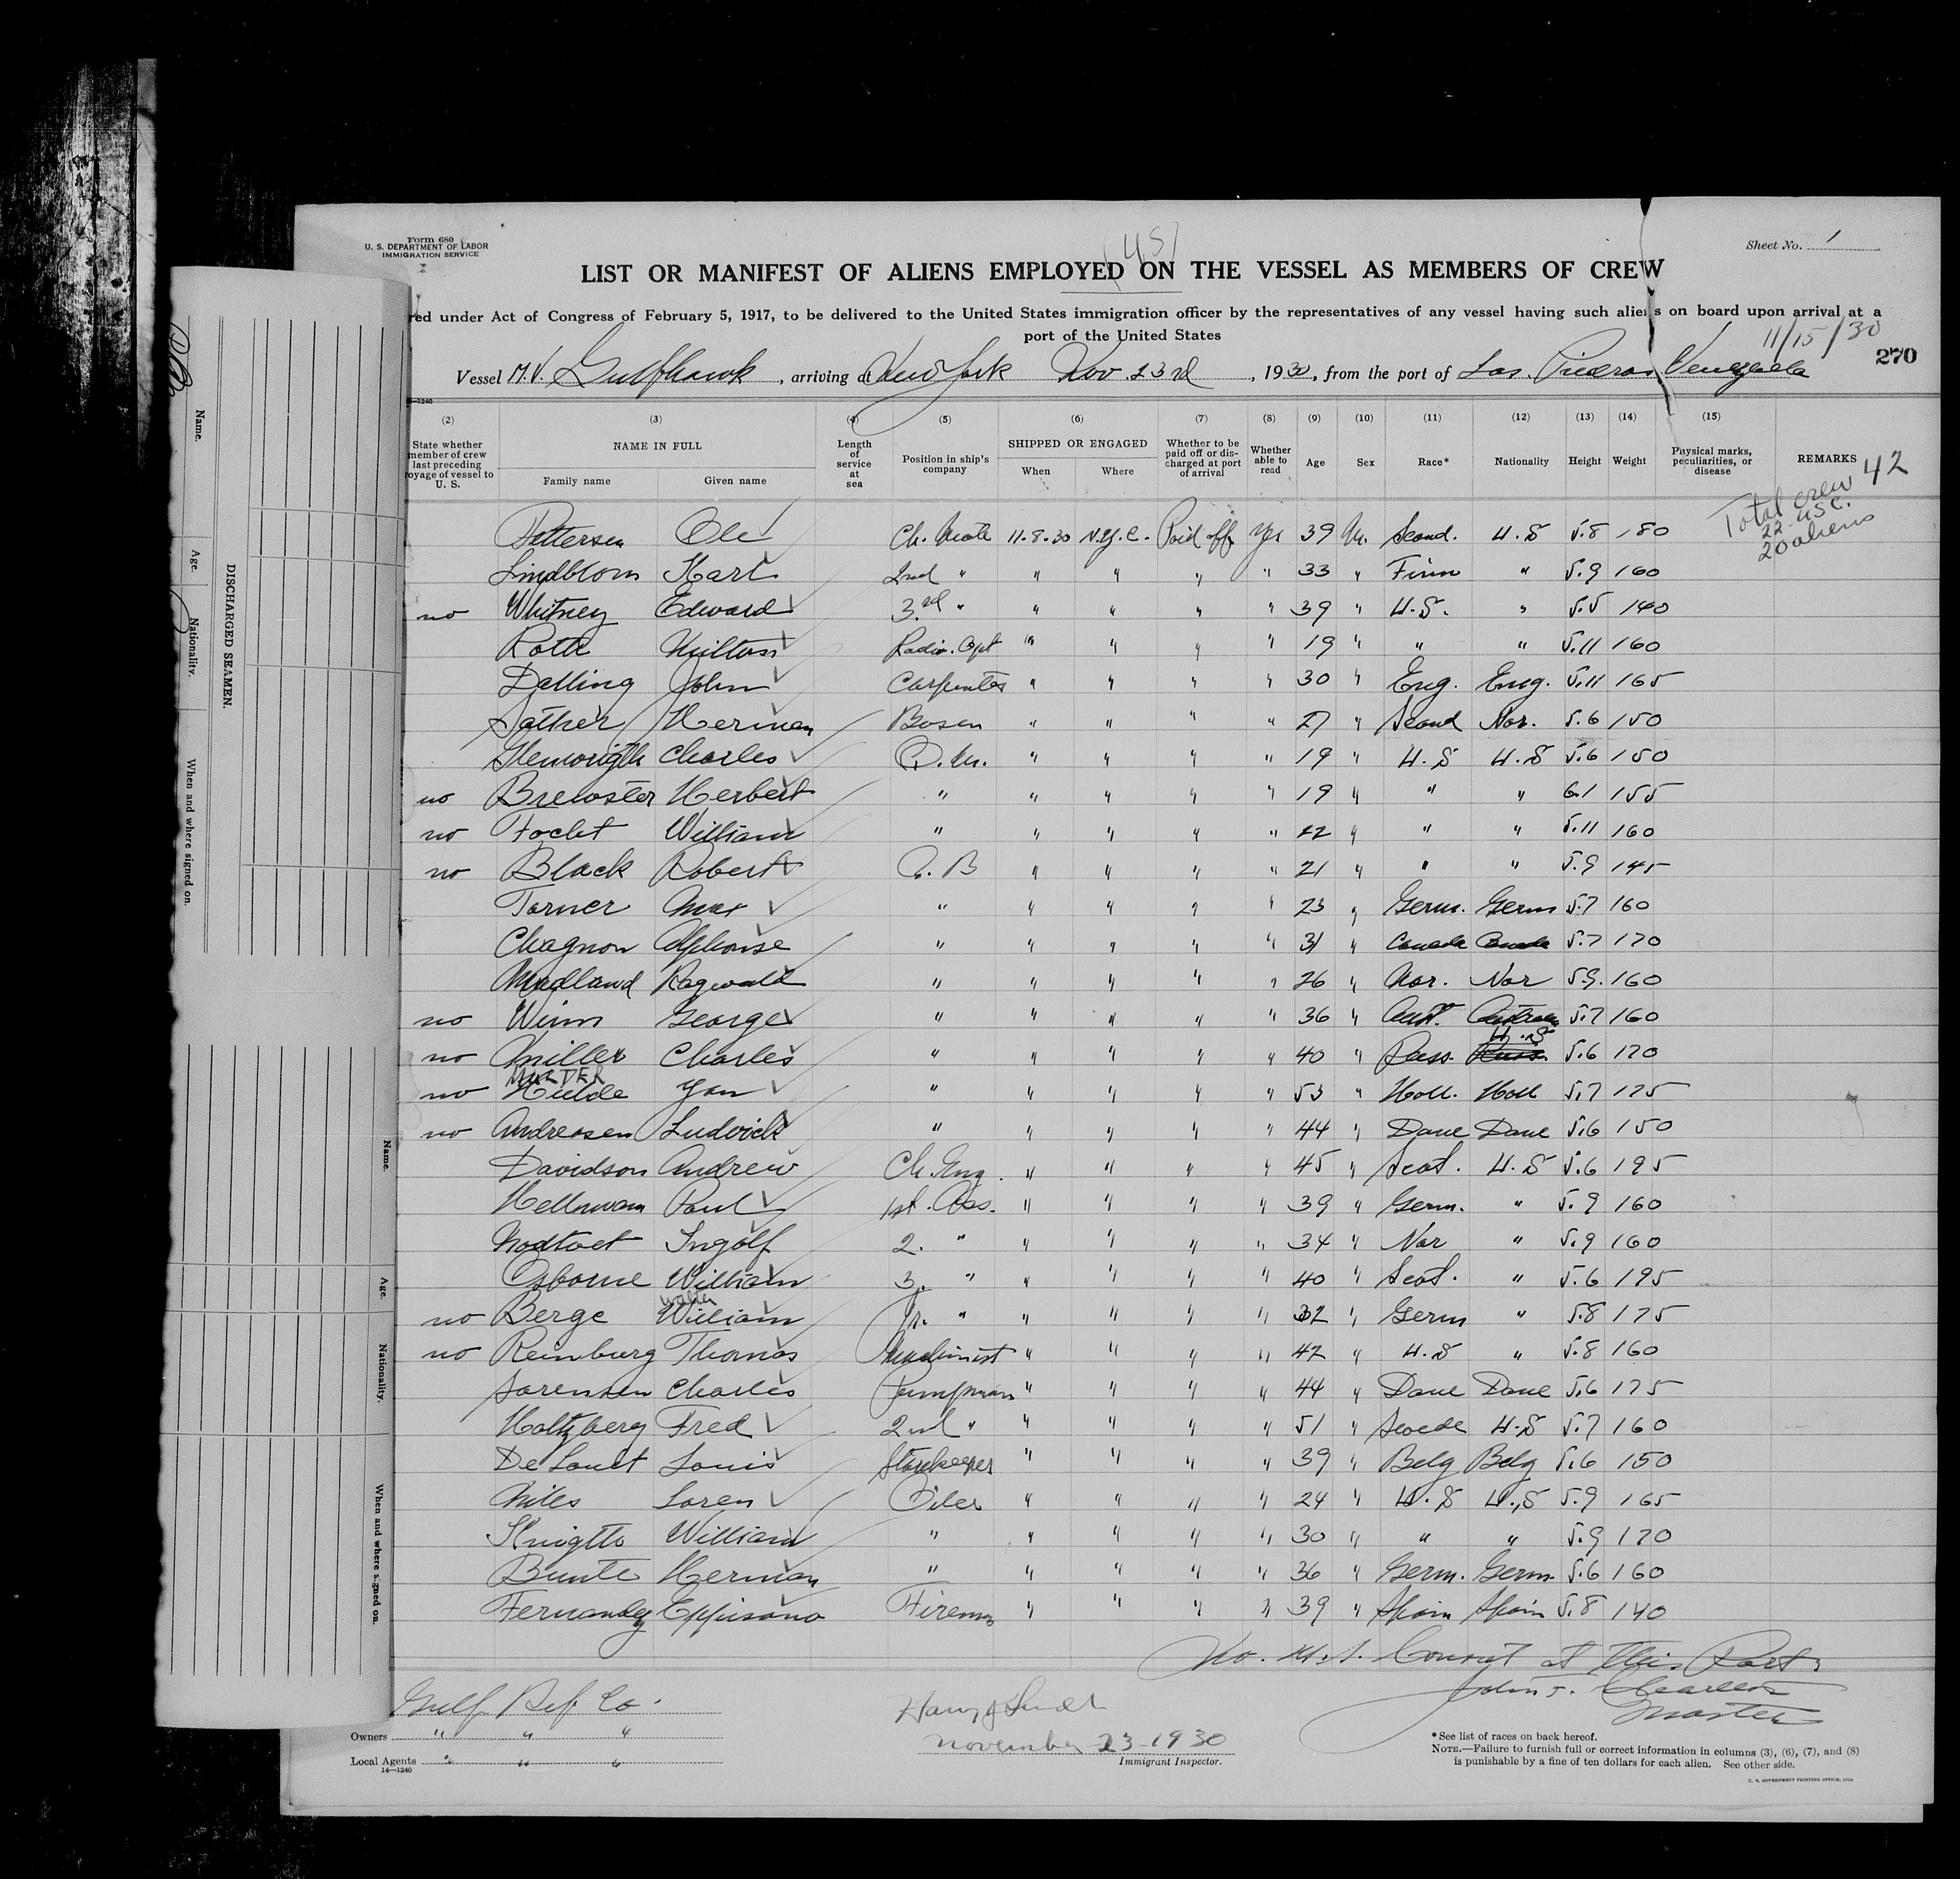 Form 680
U. S. DEPARTMENT OF LABOR
IMMIGRATION SERVICE
(U.S)
Sheet No. 1
LIST OR MANIFEST OF ALIENS EMPLOYED ON THE VESSEL AS MEMBERS OF CREW
red under Act of Congress of February 5, 1917, to be delivered to the United States immigration officer by the representatives of any vessel having such aliens on board upon arrival at a
port of the United States
11/15/30
270
Vessel M.V. Gulfhawk, arriving at New York Nov. 23rd, 1930, from the port of Las Piedras Venezuela
(2) (3) (4) (5) (6) (7) (8) (9) (10) (11) (12) (13) (14) (15)
State whether member of crew last preceding voyage of vessel to U. S. NAME IN FULL Family name Given name Length of service at sea Position in ship's company SHIPPED OR ENGAGED When Where Whether to be paid off or discharged at port of arrival Whether able to read Age Sex Race* Nationality Height Weight Physical marks, peculiarities, or disease REMARKS
42
Total crew
22-USC.
20 aliens
Pettersen Ole Ch. Mate 11.8.30 N.Y.C. Paid off Yes 39 M. Scand. U.S 5.8 180
Lindblom Karl 2nd " " " " " 33 " Finn " 5.9 160
no Whitney Edward 3rd " " " " " 39 " U.S. " 5.5 140
Roth Milton Radio. Opt " " " " 19 " " " 5.11 160
Dalling John Carpenter " " " " 30 " Eng. Eng. 5.11 165
Sather Herman Bosen " " " " 27 " Scand Nor. 5.6 150
Charles Q.M. " " " " 19 " U.S U.S 5.6 150
no Brewster Herbert " " " " " 19 " " " 6.1 155
no Focht William " " " " " 22 " " " 5.11 160
no Black Robert " " " " 21 " " " 5.9 145
Torner Max " " " " " 23 " Germ. Germ 5.7 160
Chagnon Alphonse " " " " " 31 " Canada Canada 5.7 170
Madland Ragwald " " " " " 26 " Nor. Nor 5.9. 160
no Winn George " " " " " 36 " Aust. 5.7 160
no Miller Charles " " " " " 40 " Russ. U.S 5.6 170
MULDER
no Jan " " " " " 53 " Holl. Holl 5.7 175
no Andreasen Ludvick " " " " " 44 " Dane Dane 5.6 150
Davidson Andrew Ch. Eng. " " " " 45 " Scot. U.S 5.6 195
Paul 1st. Ass. " " " " 39 " Germ. " 5.9 160
Nodtvet Ingolf 2. " " " " " 34 " Nor " 5.9 160
Osborne William 3. " " " " " 40 " Scot. " 5.6 195
Walter
no Berge William Jr. " " " " " 32 " Germ " 5.8 175
no Reinburg Thomas Machinist " " " " 42 " U.S " 5.8 160
Sorensen Charles Pumpman " " " " 44 " Dane Dane 5.6 175
Holtzberg Fred 2nd " " " " " 51 " Swede U.S 5.7 160
Louis Storekeeper " " " " 39 " Belg Belg 5.6 150
Miles Loren Oiler " " " " 24 " U.S U.S 5.9 165
William " " " " " 30 " " " 5.9 170
Bunte Herman " " " " " 36 " Germ. Germ. 5.6 160
Fernandez Fireman " " " " 39 " Spain Spain 5.8 140
No. U.S. Consul at this Port
John
Master
Gulf Ref. Co.
Owners " " "
Local Agents " " "
14—1240
November 23-1930
Immigrant Inspector.
*See list of races on back hereof.
NOTE.—Failure to furnish full or correct information in columns (3), (6), (7), and (8)
is punishable by a fine of ten dollars for each alien. See other side.
Name.
Age.
Nationality.
When and where signed on.
DISCHARGED SEAMEN.
Name.
Age.
Nationality.
When and where signed on.